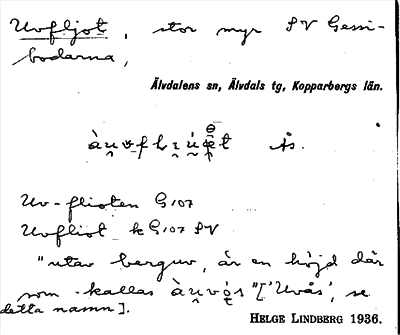 Uvfljot, stor myr SV Gessi-
bodarna,
Älvdalens sn, Älvdals tg, Kopparbergs län.
ås.
Uv-flioten G107
Uvfliot k G107 SV
"utav berguv, är en höjd där
som kallas "['Uvås', se
detta namn].
HELGE LINDBERG 1936.